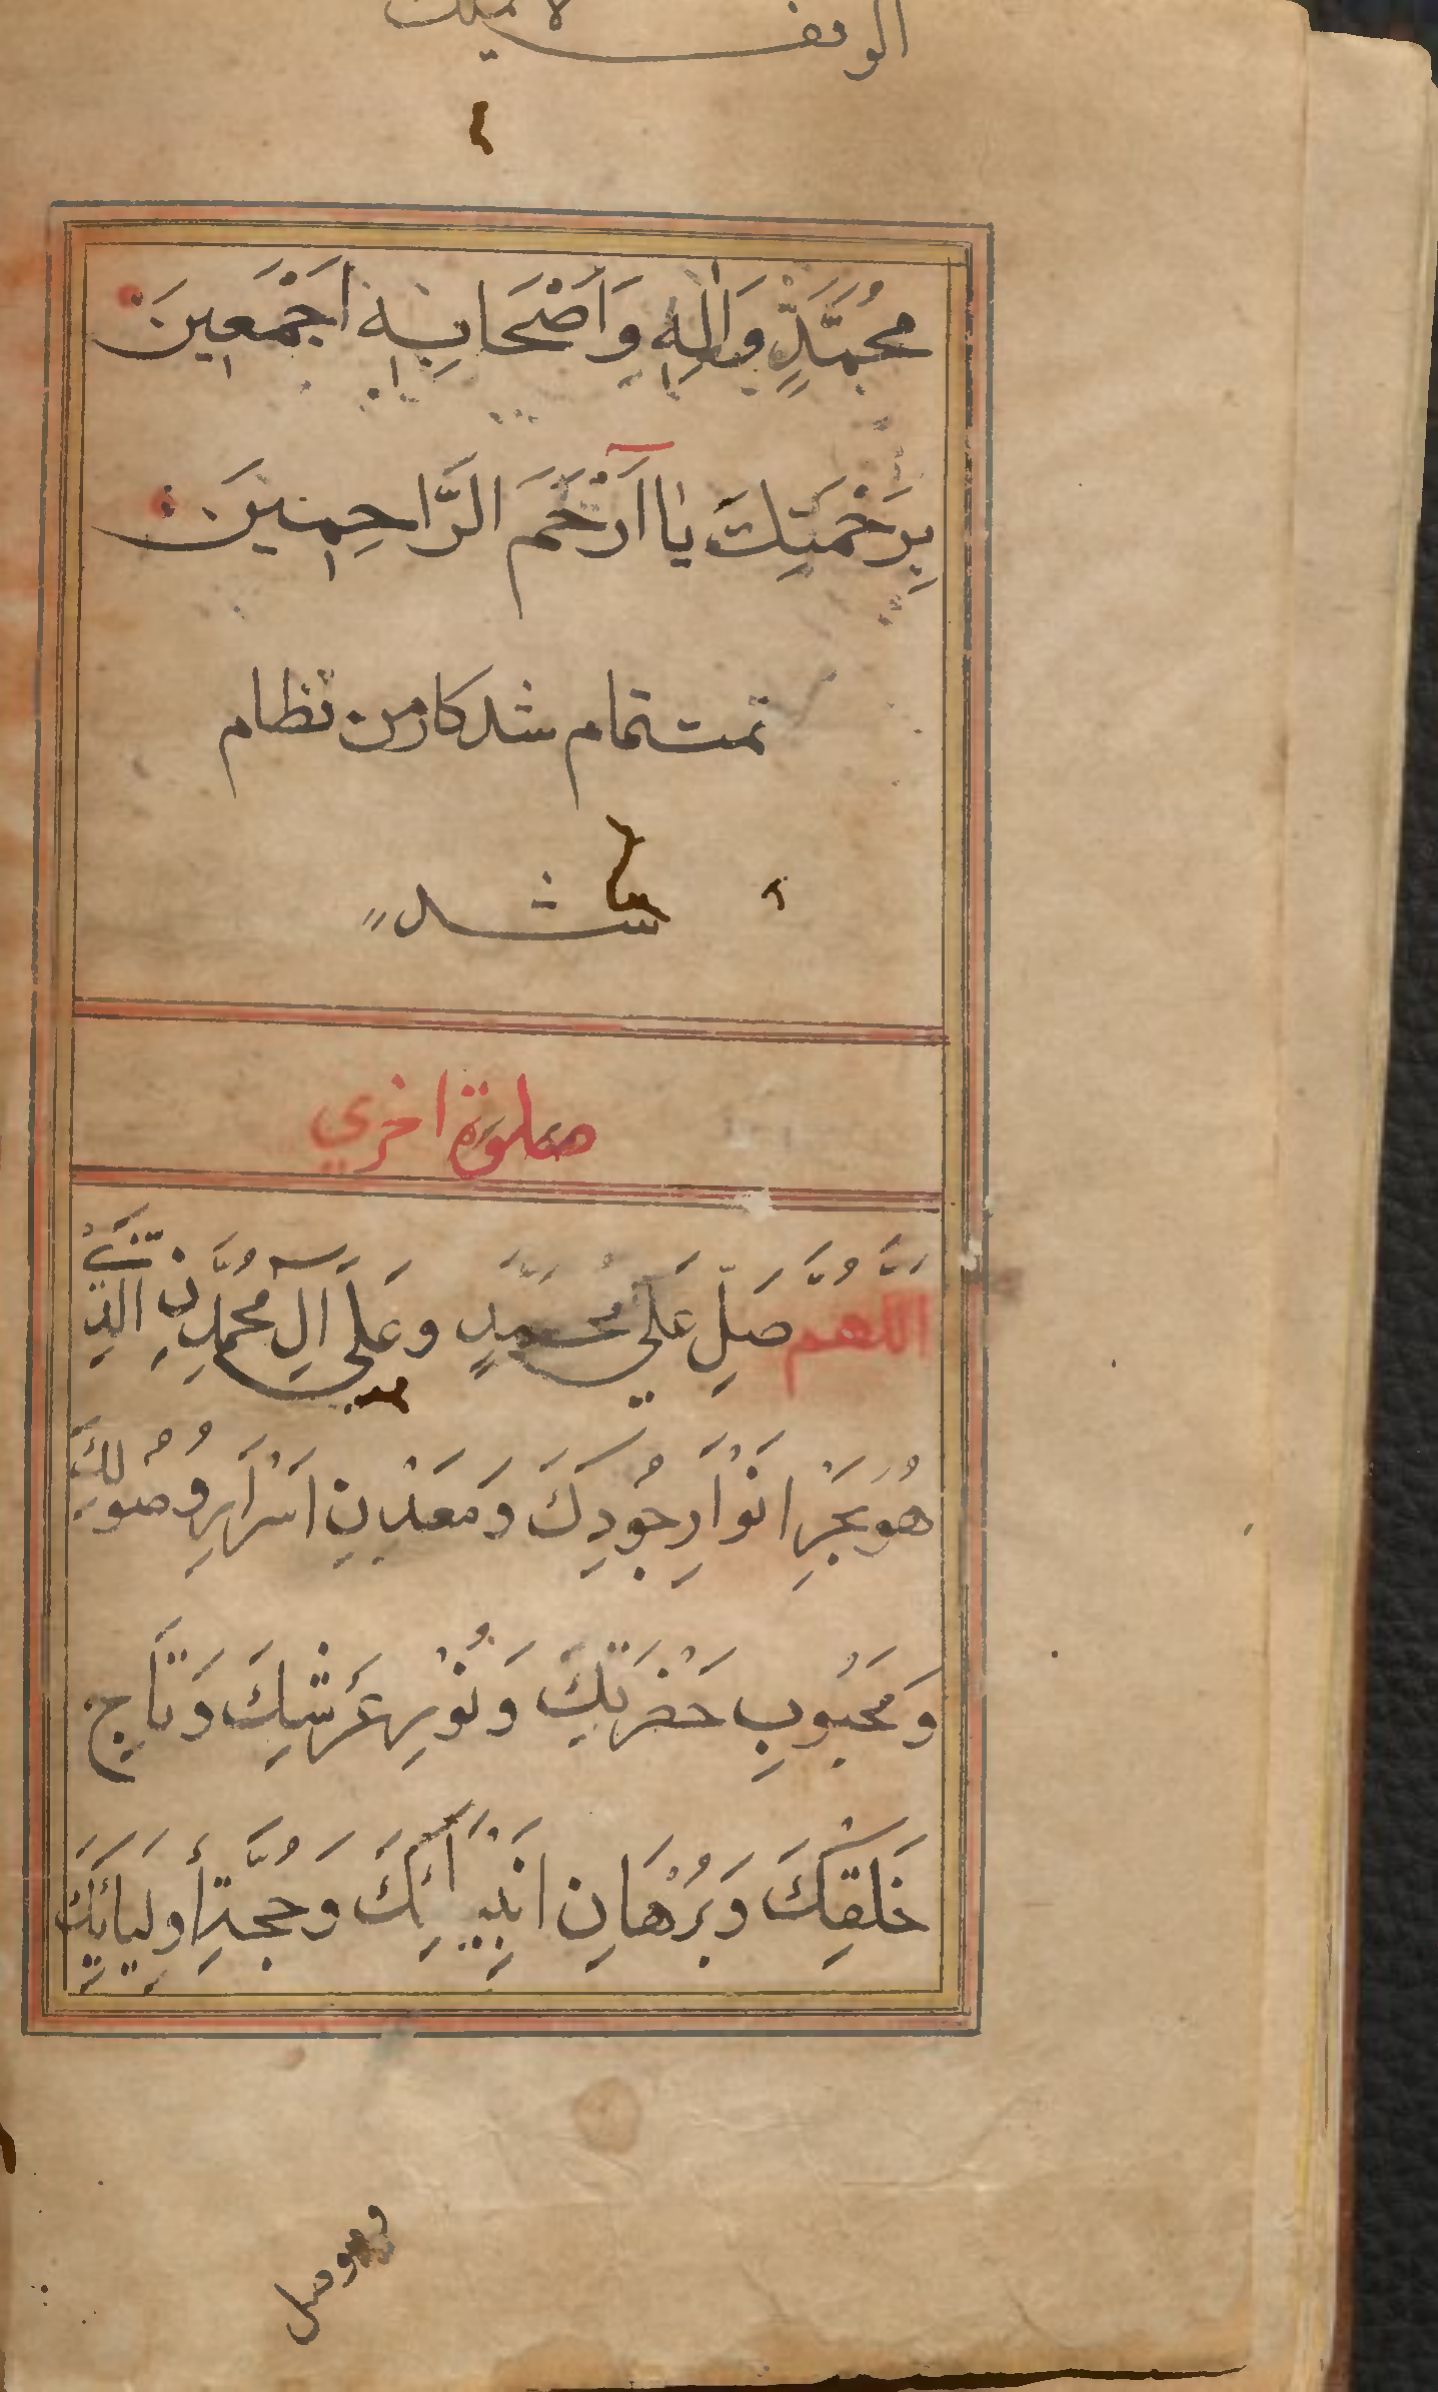 الوقف لا يملك
مُحَمَّدٍ وَاٰلِهٖ وَاَصْحَابِهٖ اَجْمَعِينَ
بِرَحْمَتِكَ يَا اَرْحَمَ الرَّاحِمِينَ
تمت تمام شد كار من نظام
شد
صلوة اخري
اللهم صَلِّ عَلَي مُحَمَّدٍ وَعَلَي آلِ مُحَمَّدِنِ الَّذِي
هُوَ بَحْرِ انْوَارِ جُودِكَ وَمَعْدِنِ اَسْرَارِ وُصُولِكَ
وَمَحْبُوبِ حَضْرَتِكَ وَنُوْرِ عَرْشِكَ وَتَاجِ
خَلْقِكَ وَبُرْهَانِ انْبِيَائِكَ وَحُجَّةِ أَولِيَائِكَ
وموصل